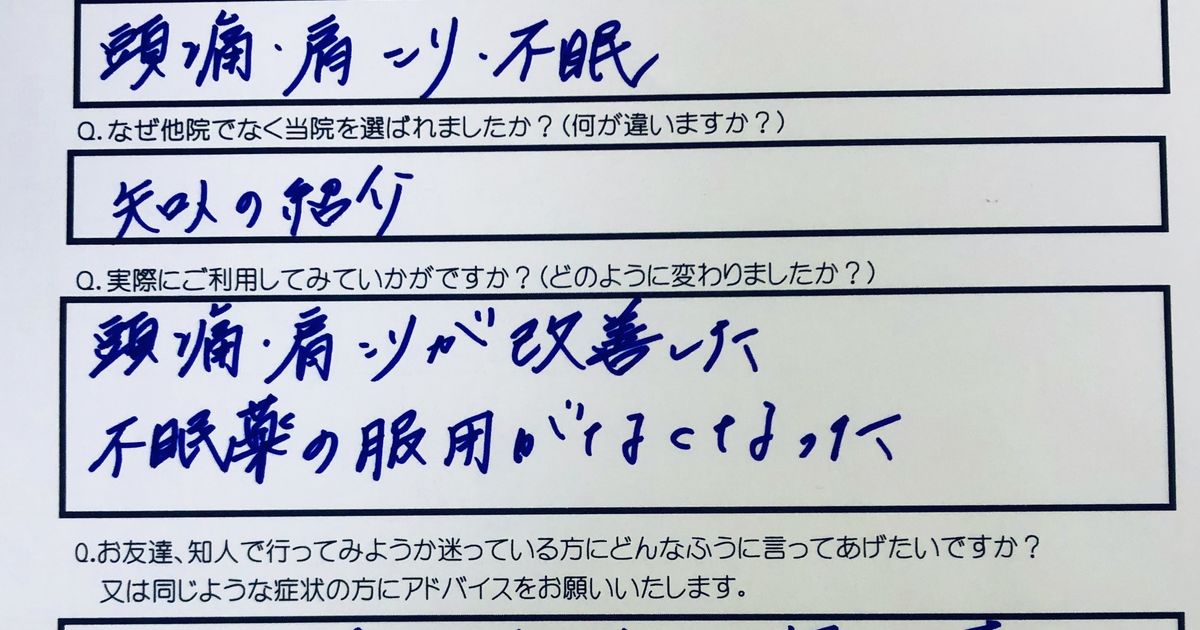 頭痛・肩こり・不眠
Q.なぜ他院でなく当院を選ばれましたか?(何が違いますか?)
知人の紹介
Q.実際にご利用してみていかがですか?(どのように変わりましたか?)
頭痛・肩こりが改善した
不眠薬の服用がなくなった
Q.お友達、知人で行ってみようか迷っている方にどんなふうに言ってあげたいですか?
又は同じような症状の方にアドバイスをお願いいたします。